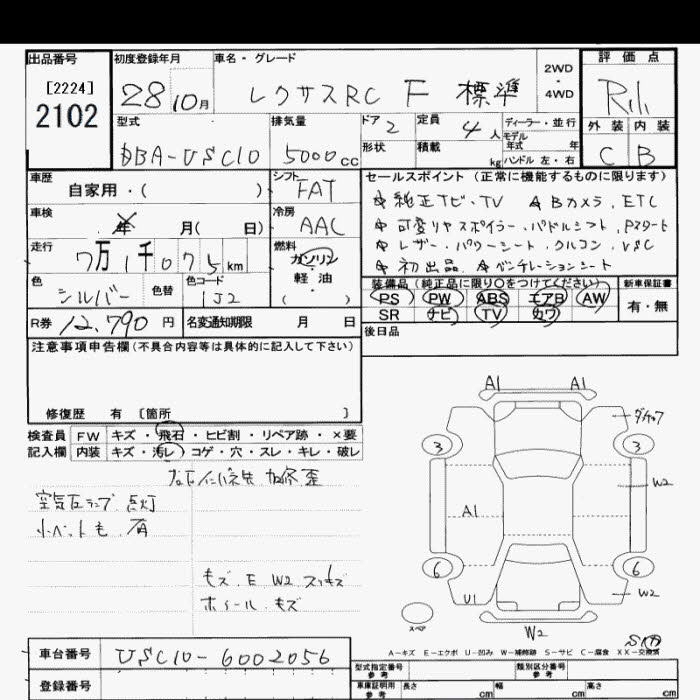 出品番号 初度登録年月 車名・グレード 評価点
[2224]
2102
28 10月 レクサスRC F 標準 2WD・4WD
外装 内装
C B
型式 排気量 ドア 2 定員 4人 ディーラー・並行
モデル年式 年
DBA-USC10 5000cc 形状 積載 kg ハンドル 左・右
車歴 自家用・( ) シフト FAT
セールスポイント(正常に機能するものに限ります)
車検 年 月( 日) 冷房 AAC
☆純正ナビ・TV ☆Bカメラ、ETC
☆可変リヤスポイラー・パドルシフト、Pスタート
☆レザー・パワーシート、クルコン、VSC
☆初出品 ☆ベンチレーションシート
走行 7万1千075km 燃料 ガソリン・軽油( )
色 シルバー 色替 色コード 1J2
装備品(純正品に限り○をつけてください) 新車保証書
PS PW ABS エアB AW 有・無
SR ナビ TV カワ
R券 12,790円 名変通知期限 月 日
後日品
注意事項申告欄(不具合内容等は具体的に記入して下さい)
修復歴 有 [箇所 ]
検査員記入欄 FW キズ・飛石・ヒビ割・リペア跡・×要
内装 キズ・汚レ・コゲ・穴・スレ・キレ・破レ
空気圧ランプ 点灯
小ヘコミも 有
キズ E W2 スリキズ
ホイール キズ
A1 A1
3 3
W2
A1
6 6
U1 W2
スペア
W2
A-キズ E-エクボ U-凹み W-補修跡 S-サビ C-腐食 XX-交換済
車台番号 USC10-6002056
登録番号
型式指定番号 参考 類別区分番号 参考
車庫証明用 参考 長さ cm 幅 cm 高さ cm